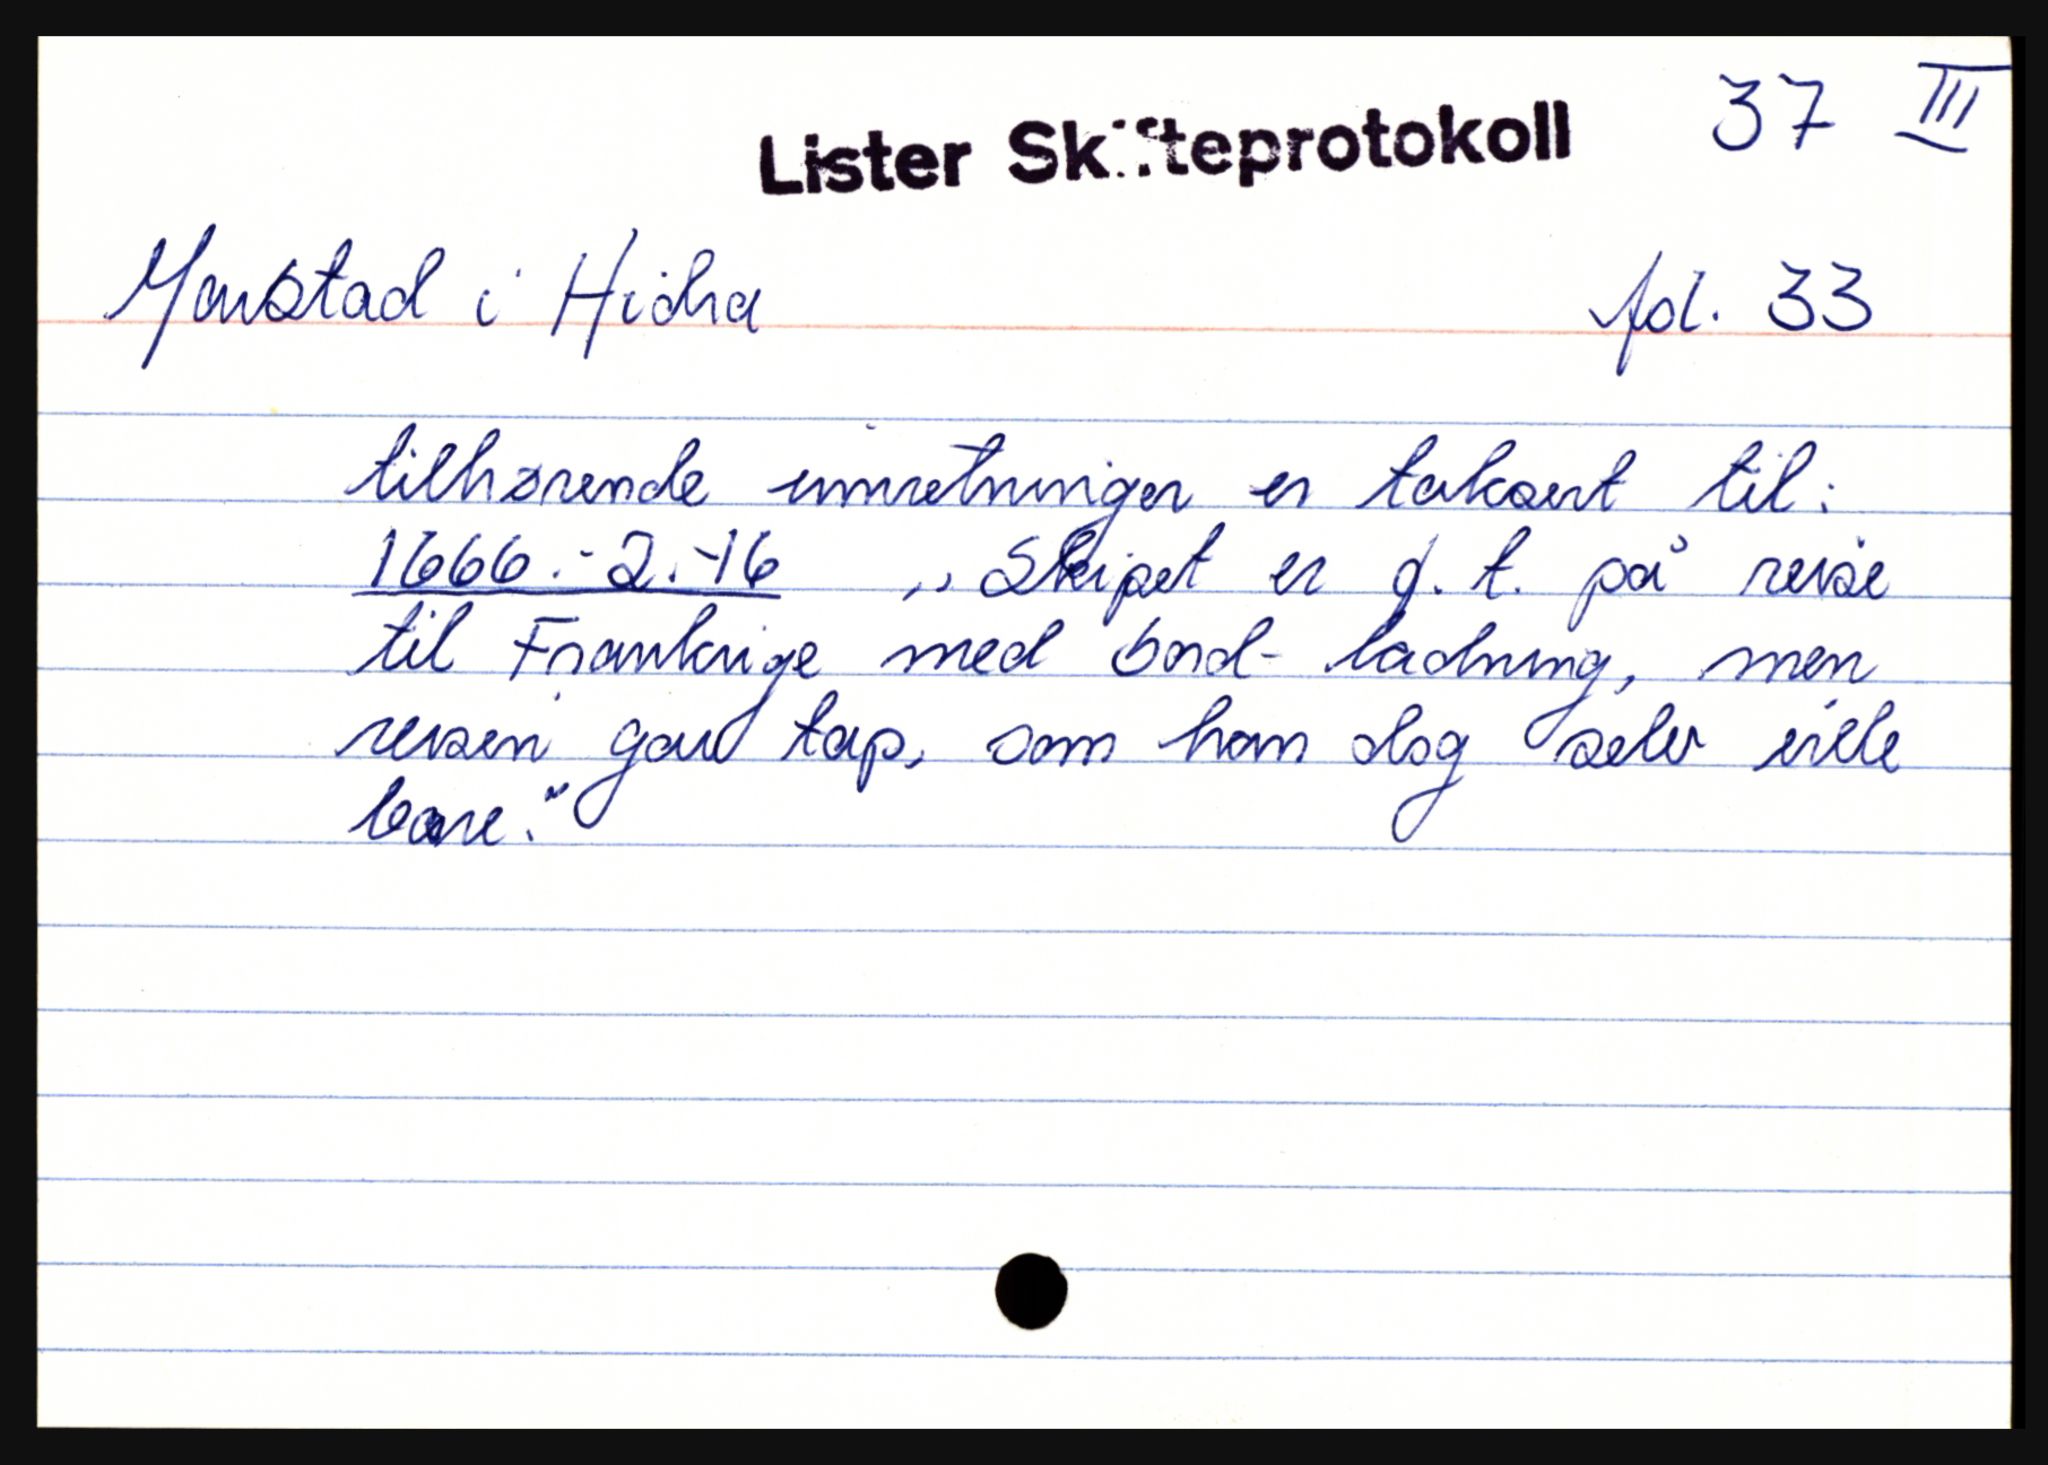 37 III
Lister Skifteprotokoll
Monstad i Hidra fol. 33
tilhørende innretninger er taksert til:
1666.-2.-16 ,,Skipet er d. t. på reise
til Frankrige med bord-ladning, men
reisen gav tap, som han dog selv ville
bære."